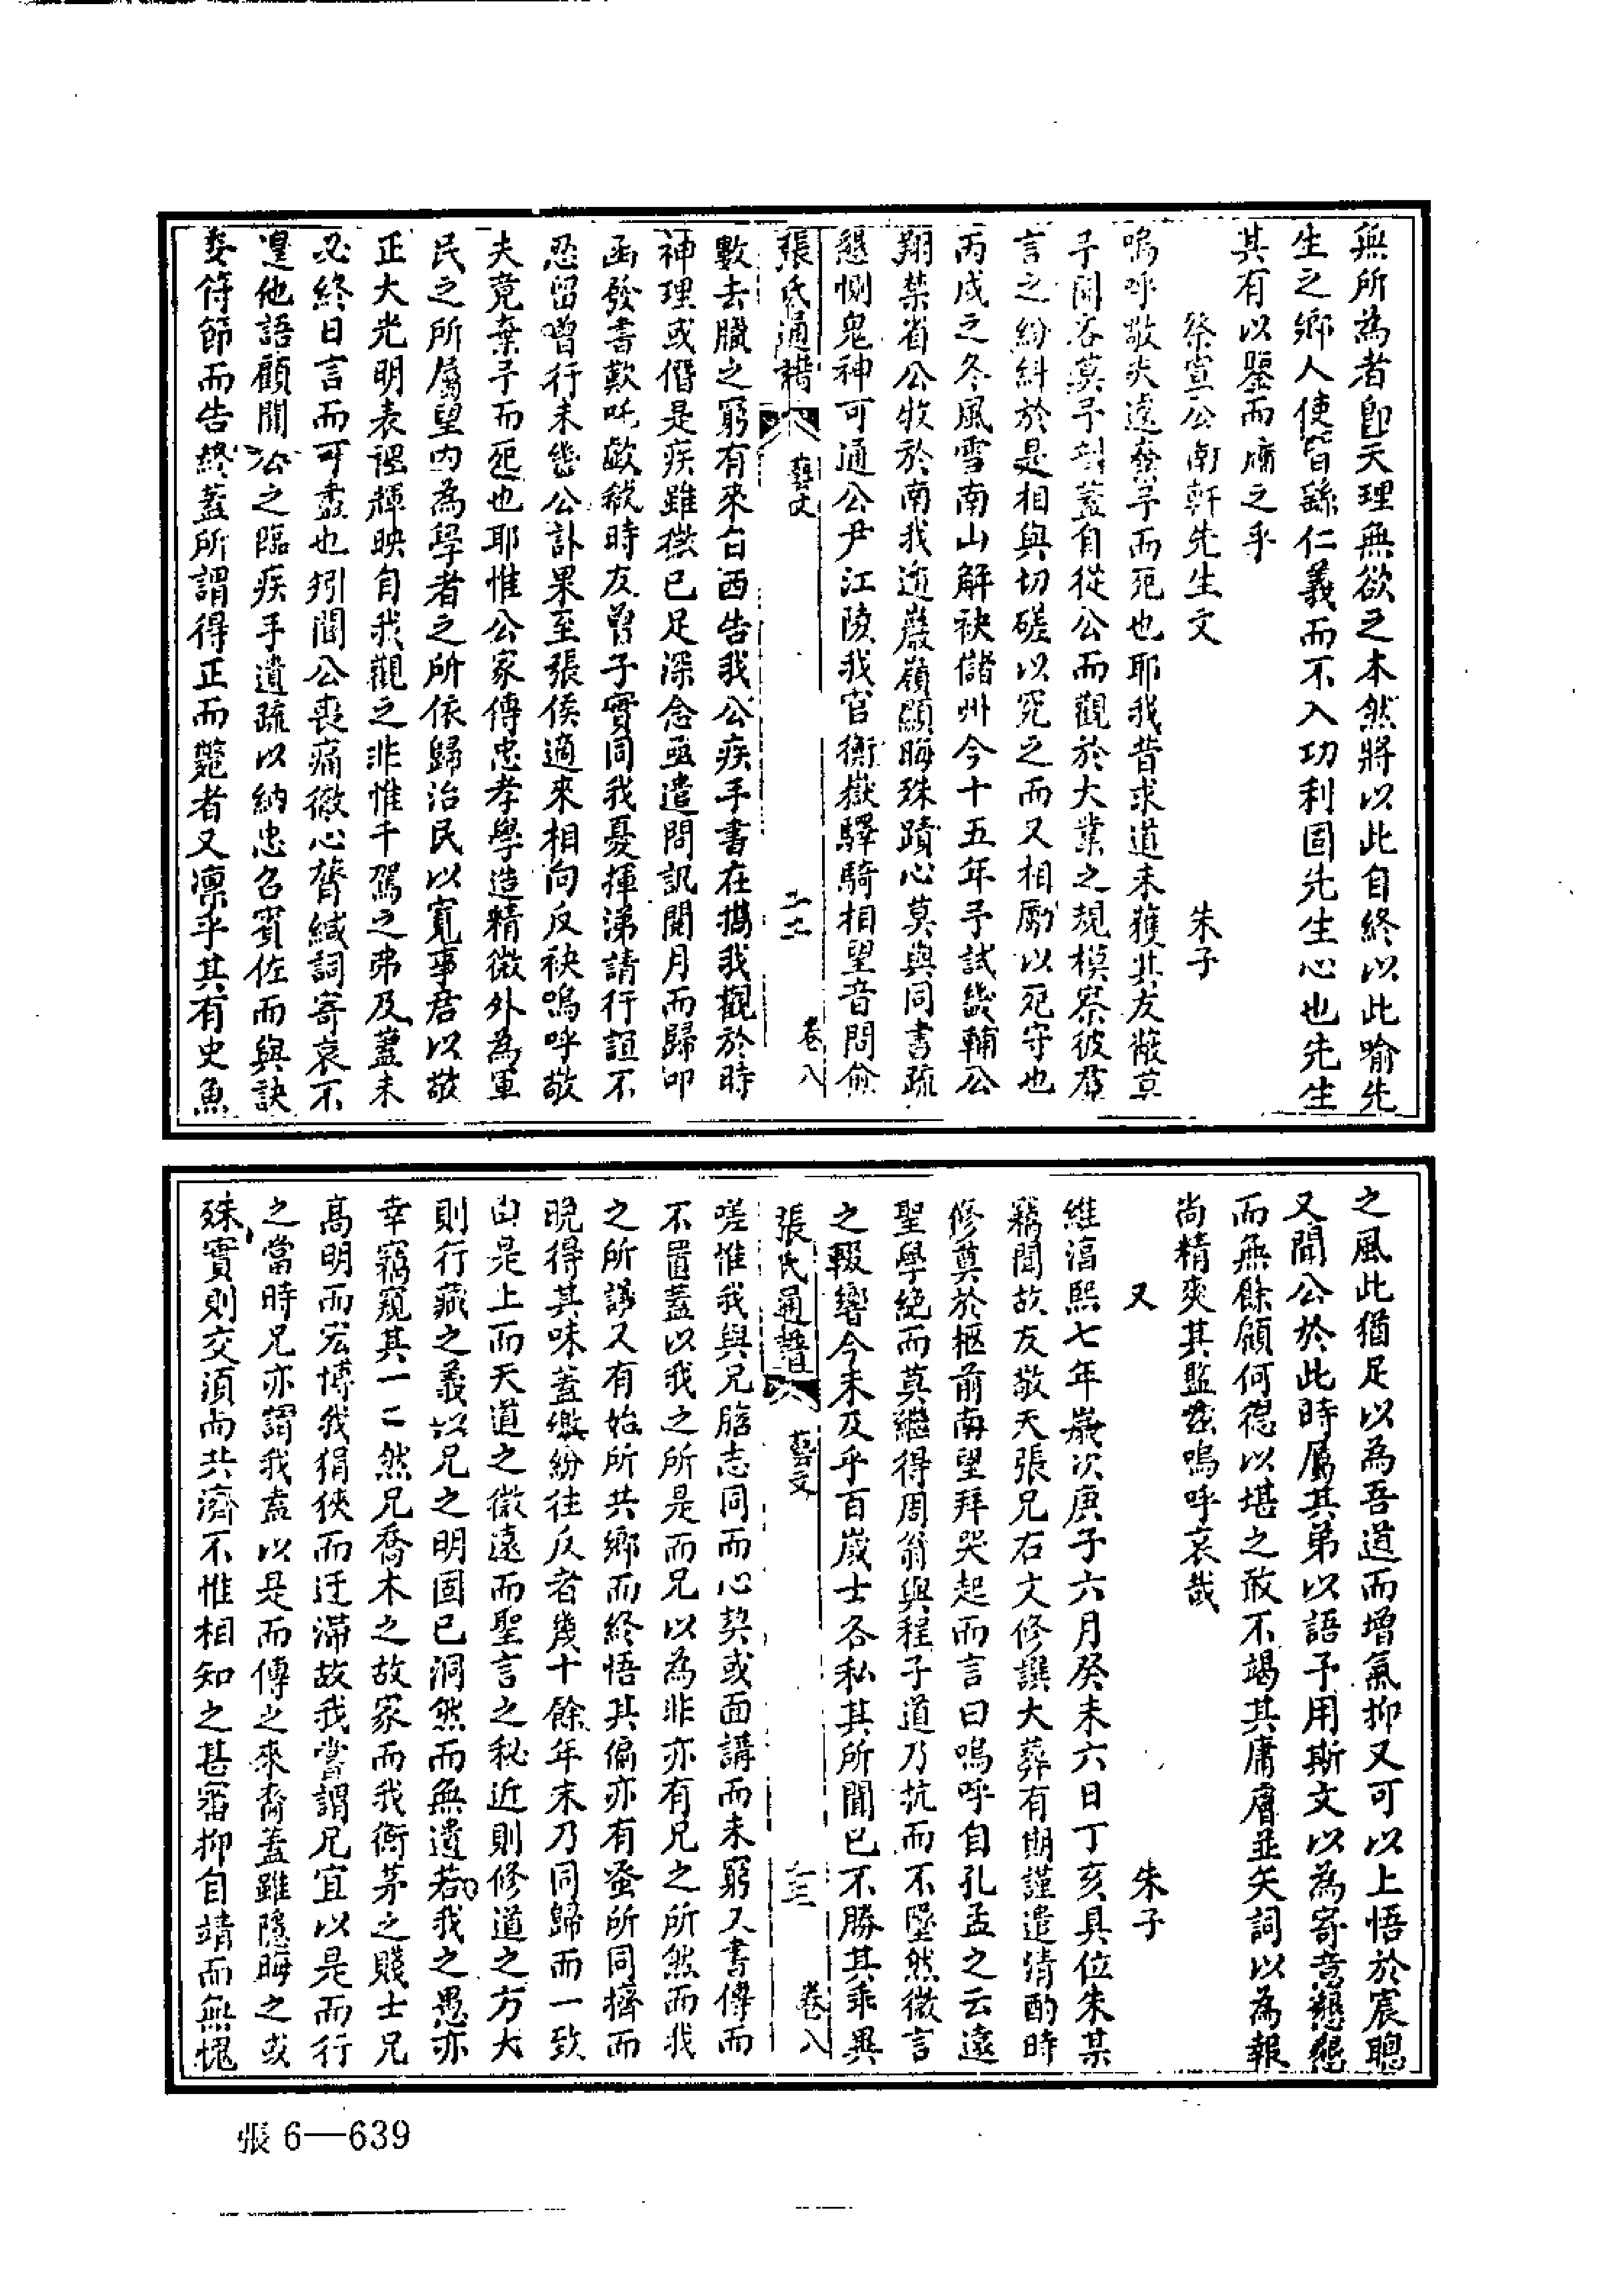 無所為者卽天理無欲之本然將以此自終以此喻先
生之鄉人使皆繇仁義而不入功利固先生心也先生
其有以鑒而庸之乎
祭宣公南軒先生文 朱子
嗚呼敬夫遽棄予而死也耶我昔求道未獲其友蔽莫
予開吝莫予剖蓋自從公而觀於大業之規模察彼羣
言之紛糾於是相與切磋以究之而又相厲以死守也
丙戌之冬風雪南山解袂儲州今十五年予試畿輔公
翔禁省公牧於南我遁巖嶺顯晦殊蹟心莫與同書疏
懇惻鬼神可通公尹江陵我官衡嶽驛騎相望音問僉
張氏通譜 藝文 二十二 卷八
數去臘之窮有來自西告我公疾手書在攜我觀於時
神理或僭是疾雖微已足深念亟遣問訊閱月而歸叩
函發書歎吒歔欷時友曾子實同我憂揮涕請行誼不
忍留曾行未幾公訃果至張侯適來相向反袂嗚呼敬
夫竟棄予而死也耶惟公家傳忠孝學造精微外為軍
民之所屬望內為學者之所依歸治民以寬事君以敬
正大光明表裡輝映自我觀之非惟千駕之弗及蓋未
必終日言而可盡也矧聞公喪痛徹心膂緘詞寄哀不
遑他語顧聞公之臨疾手遺疏以納忠召賓佐而與訣
委符節而告終蓋所謂得正而斃者又凜乎其有史魚
之風此猶足以為吾道而增氣抑又可以上悟於宸聰
又聞公於此時屬其弟以語予用斯文以為寄意懇懇
而無餘顧何德以堪之敢不竭其庸膚並矢詞以為報
尚精爽其監茲嗚呼哀哉
又 朱子
維淳熙七年歲次庚子六月癸未六日丁亥具位朱某
竊聞故友敬夫張兄右文修譔大葬有期謹遣清酌時
修奠於柩前南望拜哭起而言曰嗚呼自孔孟之云遠
聖學絕而莫繼得周翁與程子道乃抗而不墜然微言
之輟響今未及乎百歲士各私其所聞已不勝其乖異
張氏通譜 藝文 二十三 卷八
嗟惟我與兄脗志同而心契或面講而未窮又書傳而
不置蓋以我之所是而兄以為非亦有兄之所然而我
之所議又有始所共鄉而終悟其偏亦有蚤所同擠而
晚得其味蓋繳紛往反者幾十餘年末乃同歸而一致
由是上而天道之微遠而聖言之秘近則修道之方大
則行藏之義以兄之明固已洞然而無遺若我之愚亦
幸竊窺其一二然兄喬木之故家而我衡茅之賤士兄
高明而宏博我狷狹而迂滯故我嘗謂兄宜以是而行
之當時兄亦謂我盍以是而傳之來裔蓋雖隱晦之或
殊實則交須而共濟不惟相知之甚審抑自靖而無愧
張6—639